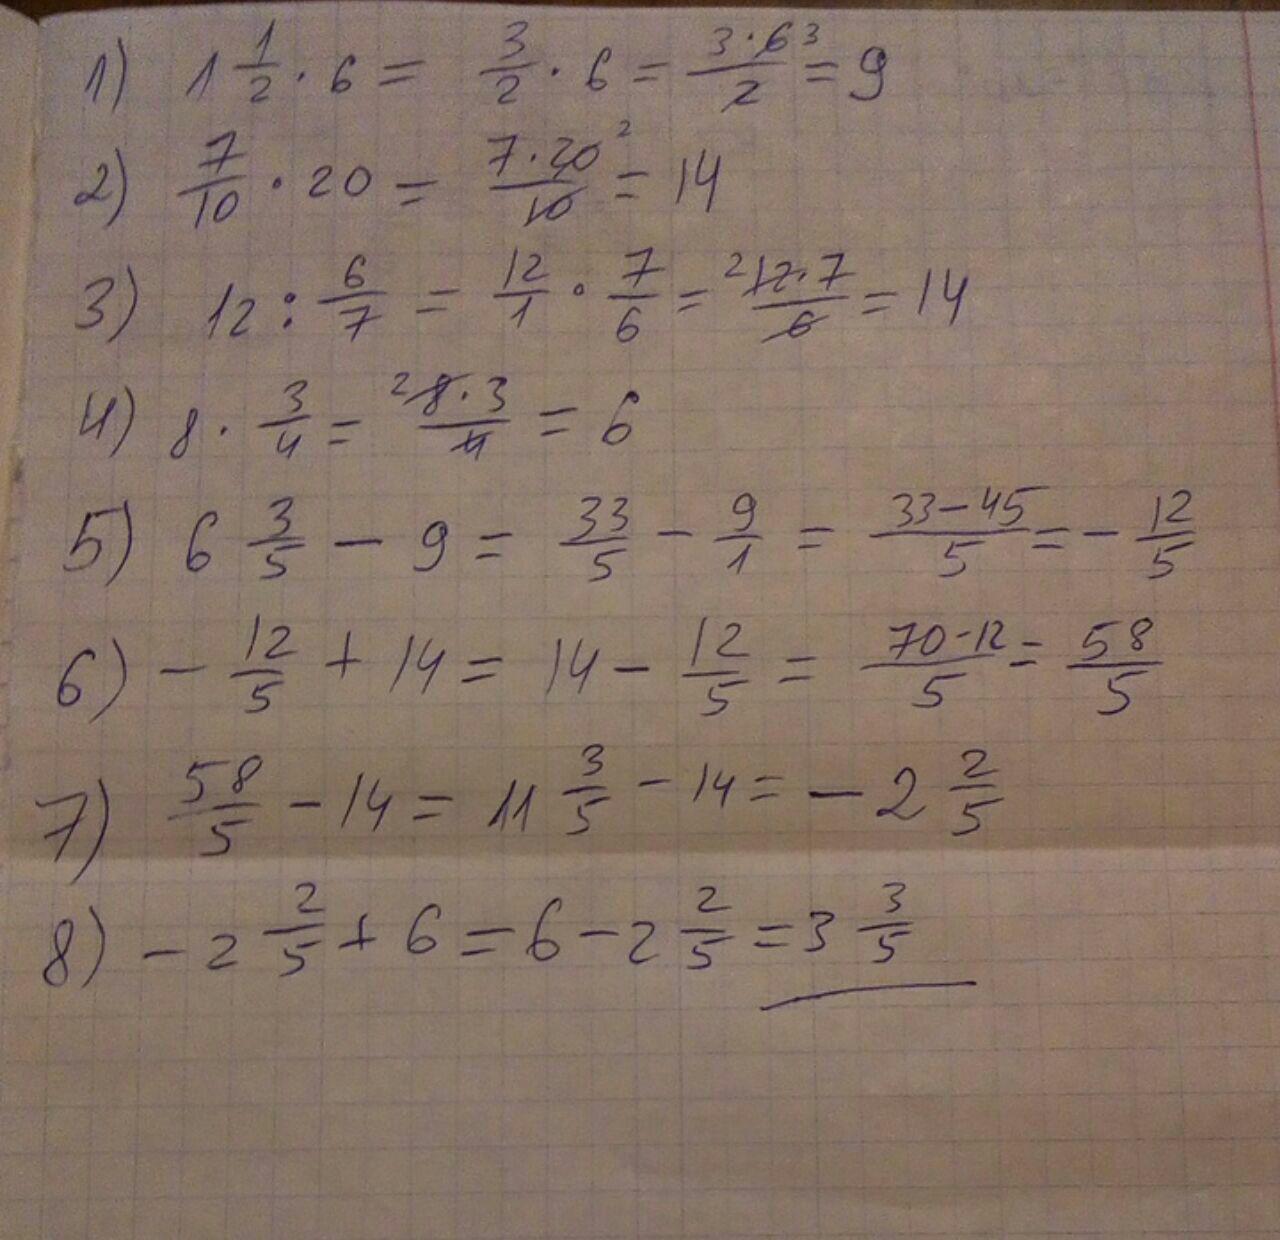 1) 1 1/2 · 6 = 3/2 · 6 = 3·6 3/2 = 9
2) 7/10 · 20 = 7·20 2/10 = 14
3) 12 : 6/7 = 12/1 · 7/6 = 2 12·7/6 = 14
4) 8 · 3/4 = 2 8·3/4 = 6
5) 6 3/5 - 9 = 33/5 - 9/1 = 33-45/5 = - 12/5
6) - 12/5 + 14 = 14 - 12/5 = 70-12/5 = 58/5
7) 58/5 - 14 = 11 3/5 - 14 = - 2 2/5
8) - 2 2/5 + 6 = 6 - 2 2/5 = 3 3/5